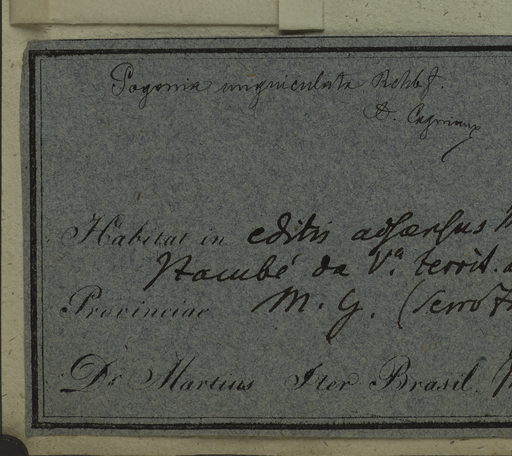 Pogonia unguiculata Rchb f.
D. Cogniaux
Habitat in editis adversus
Itambé da Va. territ.
Provinciae M. G. (Serro
Dr. Martius Iter Brasil.